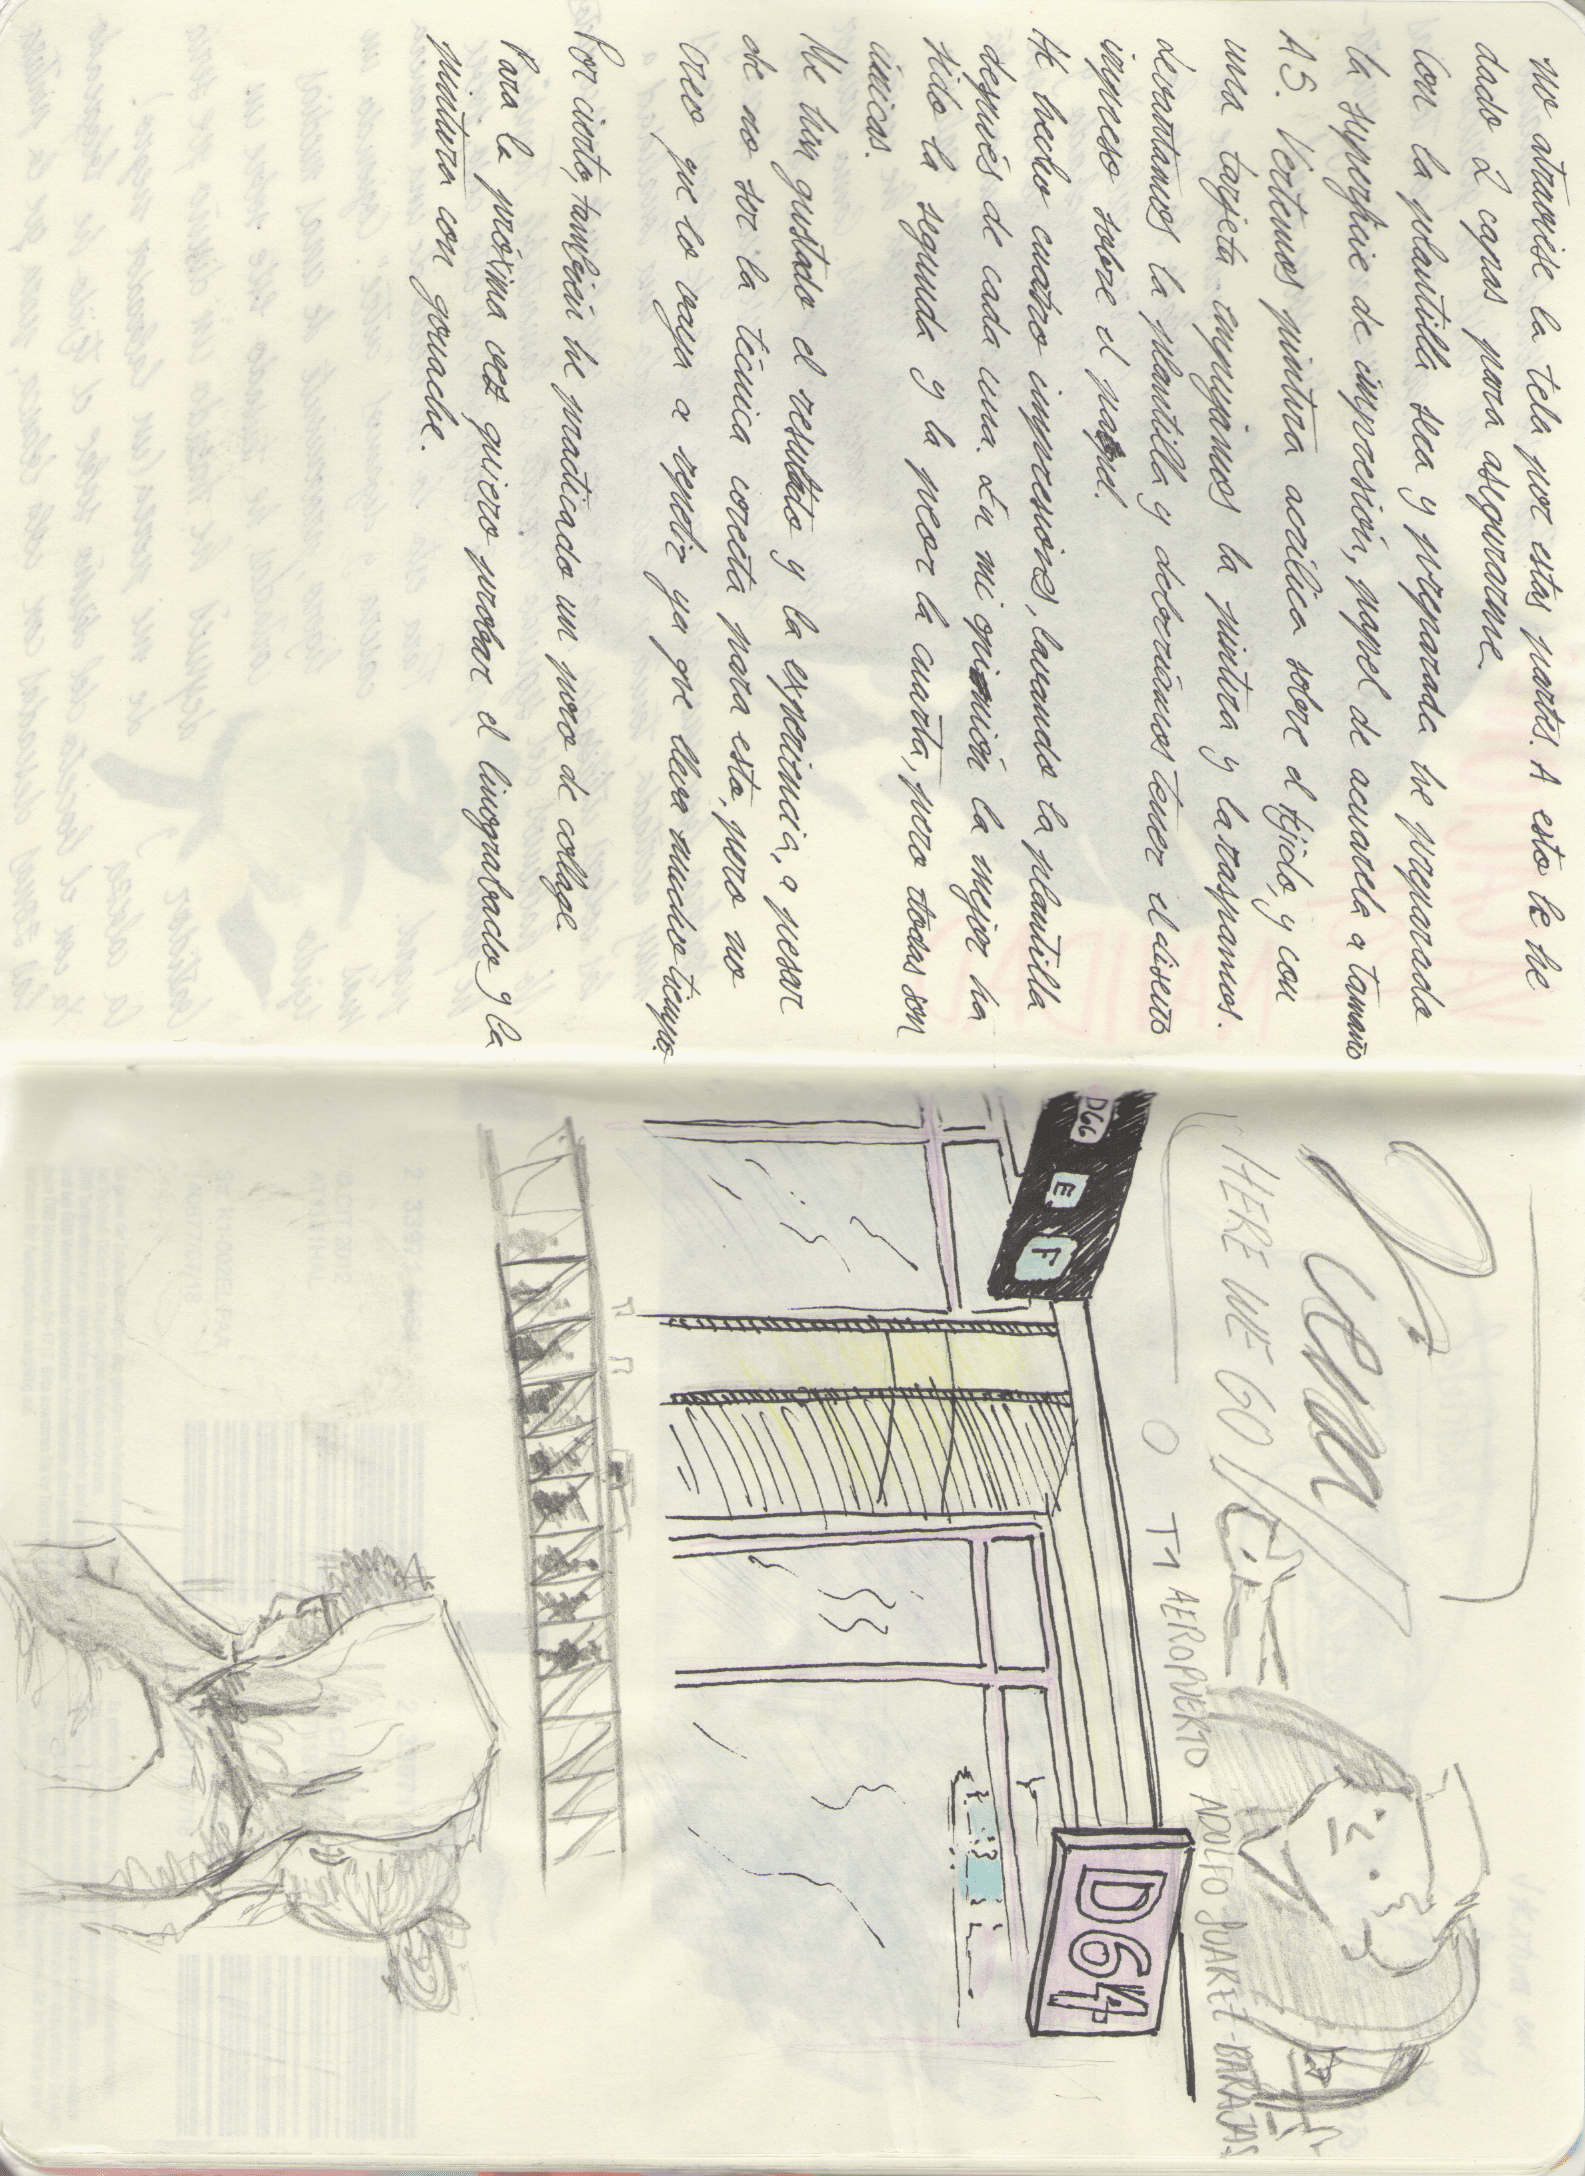 no atraviese la tela por estas partes. A esto le he
dado 2 capas para asegurarme.
Con la plantilla seca y preparada he preparado
la superficie de impresión, papel de acuarela a tamaño
A5. Vertemos pintura acrílica sobre el tejido, y con
una tarjeta empujamos la pintura y la raspamos.
Levantamos la plantilla y deberíamos tener el diseño
impreso sobre el papel.
He hecho cuatro impresiones, lavando la plantilla
después de cada una. En mi opinión la mejor ha
sido la segunda y la peor la cuarta, pero todas son
únicas.
Me han gustado el resultado y la experiencia, a pesar
de no ser la técnica correcta para esto, pero no
creo que lo vaya a repetir ya que lleva mucho tiempo.
Por cierto, también he practicado un poco de collage.
Para la próxima vez quiero probar el linograbado y la
pintura con gouache.
Viena
HERE WE GO!!
T4 AEROPUERTO ADOLFO SUAREZ-BARAJAS
D66 E F
D64